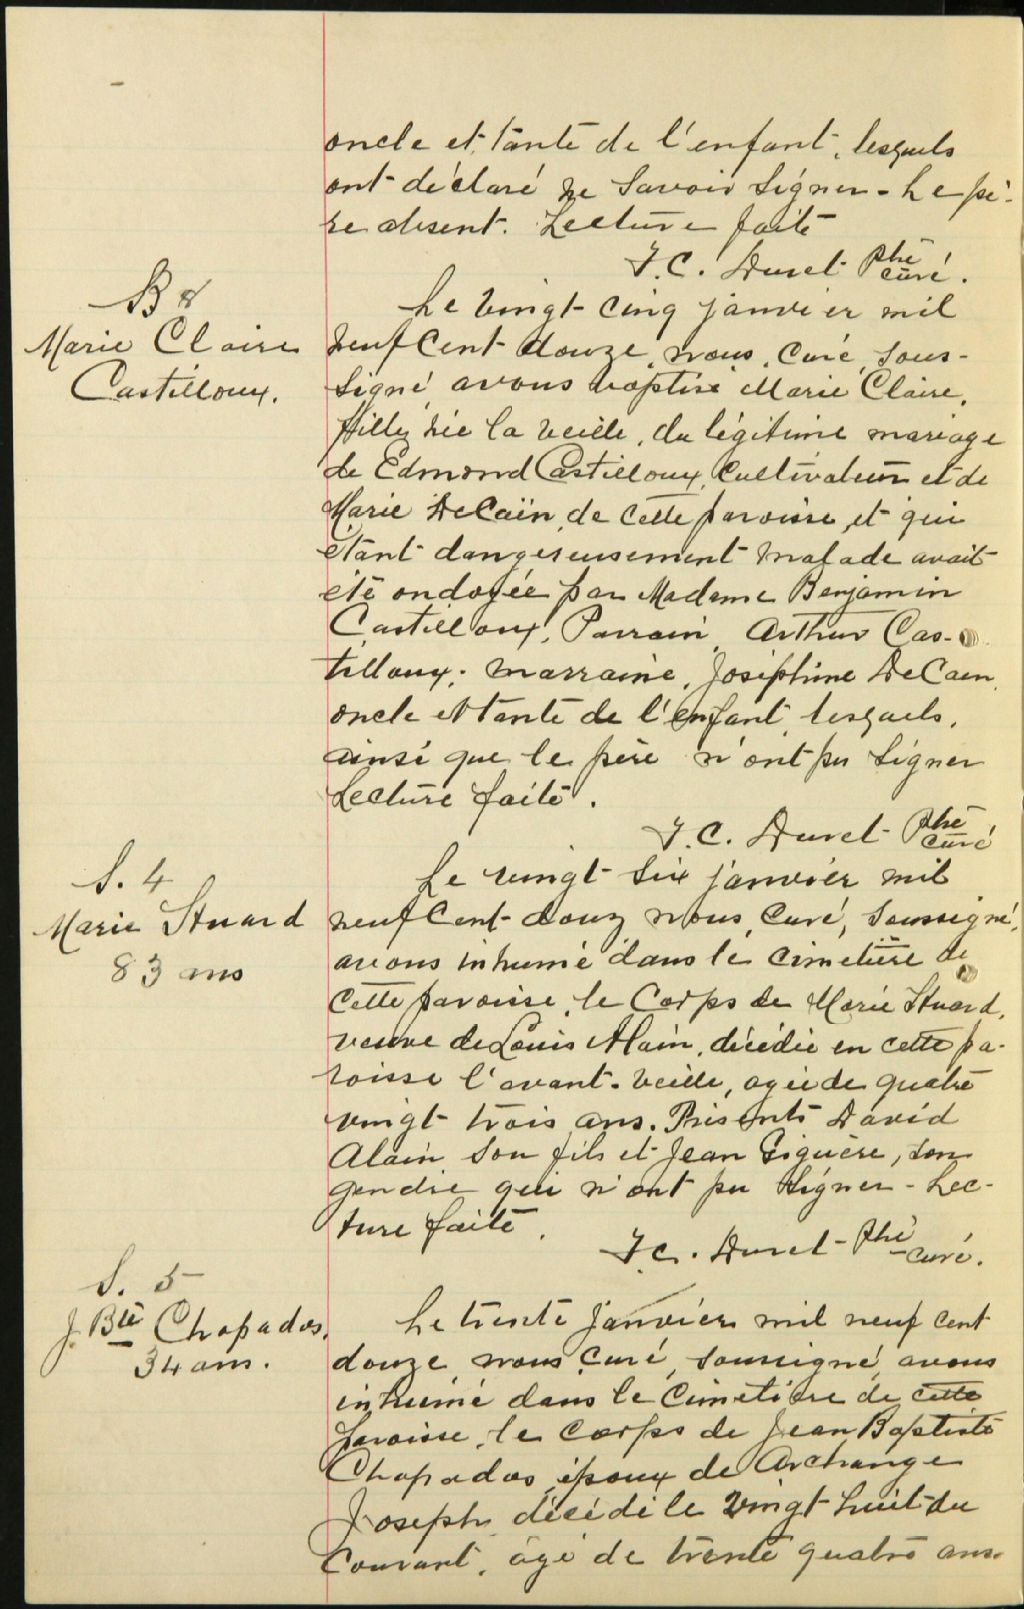 oncle et tante de l'enfant, lesquels
ont déclaré ne savoir signer - Le pè-
re absent. Lecture faite
J.C. Duret Ptre curé.
B 8
Marie Claire
Castilloux.
Le vingt-cinq janvier mil
neuf cent douze, nous, curé, sous-
signé, avons baptisé Marie Claire,
fille, née la veille, du légitime mariage
de Edmond Castilloux, cultivateur et de
Marie DeCaën, de cette paroisse, et qui
étant dangereusement malade avait
été ondoyée par Madame Benjamin
Castilloux, Parrain, Arthur Cas-
tilloux; marraine, Joséphine DeCaen,
oncle et tante de l'enfant, lesquels,
ainsi que le père n'ont pu signer
Lecture faite.
J.C. Duret Ptre curé
S. 4
Marie Stuard
83 ans
Le vingt-six janvier mil
neuf cent douze nous, curé, soussigné,
avons inhumé dans le cimetière de
cette paroisse, le corps de Marie Stuard,
veuve de Louis Alain, décédée en cette pa-
roisse l'avant-veille, agée de quatre
vingt trois ans. Présents David
Alain, son fils et Jean Giguère, son
gendre qui n'ont pu signer - Lec-
ture faite.
J.C. Duret - Ptre curé.
S. 5
J. Bte Chapados,
34 ans.
Le trente janvier mil neuf cent
douze nous curé, soussigné, avons
inhumé dans le cimetière de cette
paroisse, le corps de Jean Baptiste
Chapados, époux de Archange
Joseph, décédé le vingt-huit du
courant, âgé de trente quatre ans.